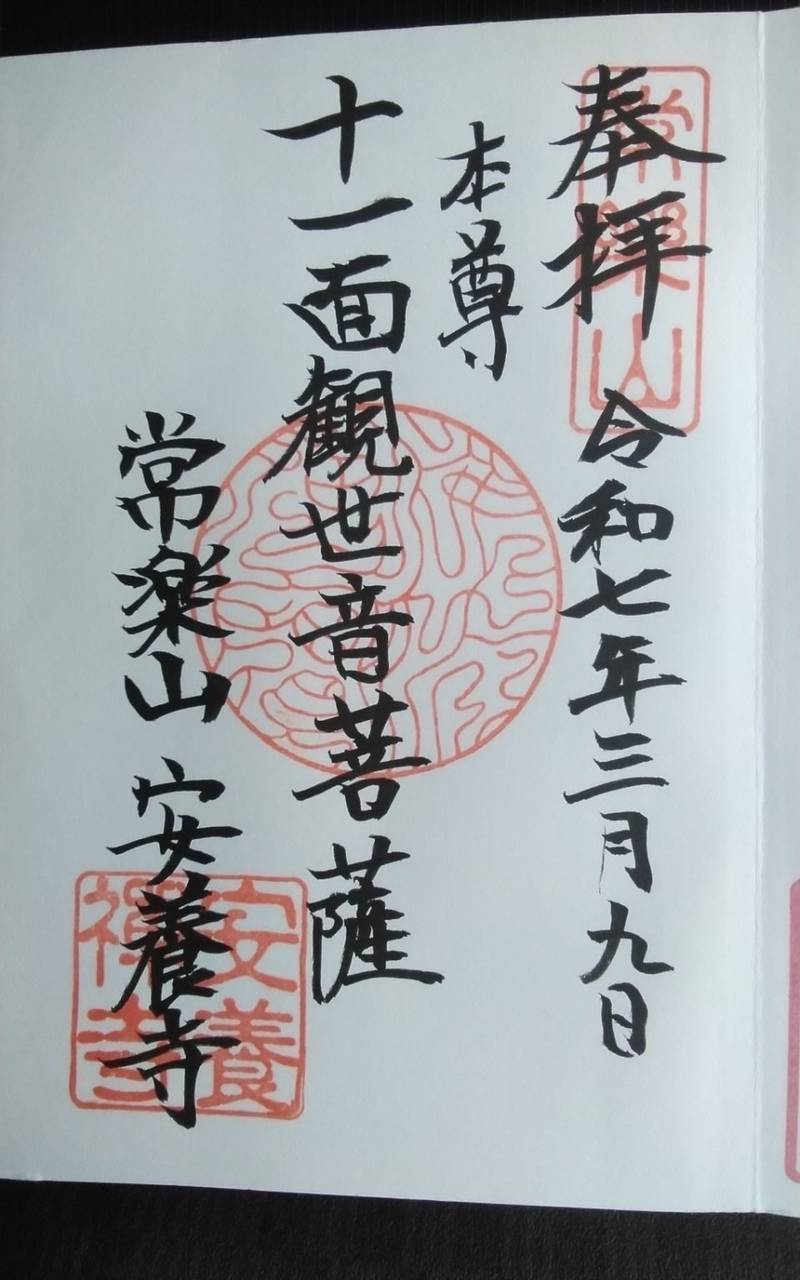 奉拝 令和七年三月九日
本尊
十一面観世音菩薩
常楽山 安養寺
常樂山
安養
禅寺